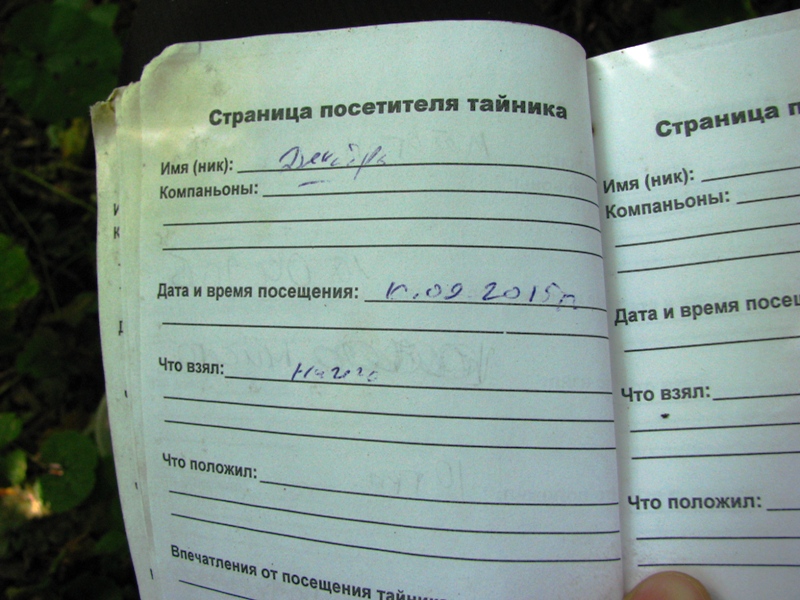 Страница посетителя тайника
Имя (ник):
Компаньоны: —
Дата и время посещения: .09.2015р.
Что взял:
Что положил:
Впечатления от посещения тайника
Страница п
Имя (ник):
Компаньоны:
Дата и время посещ
Что взял:
Что положил: